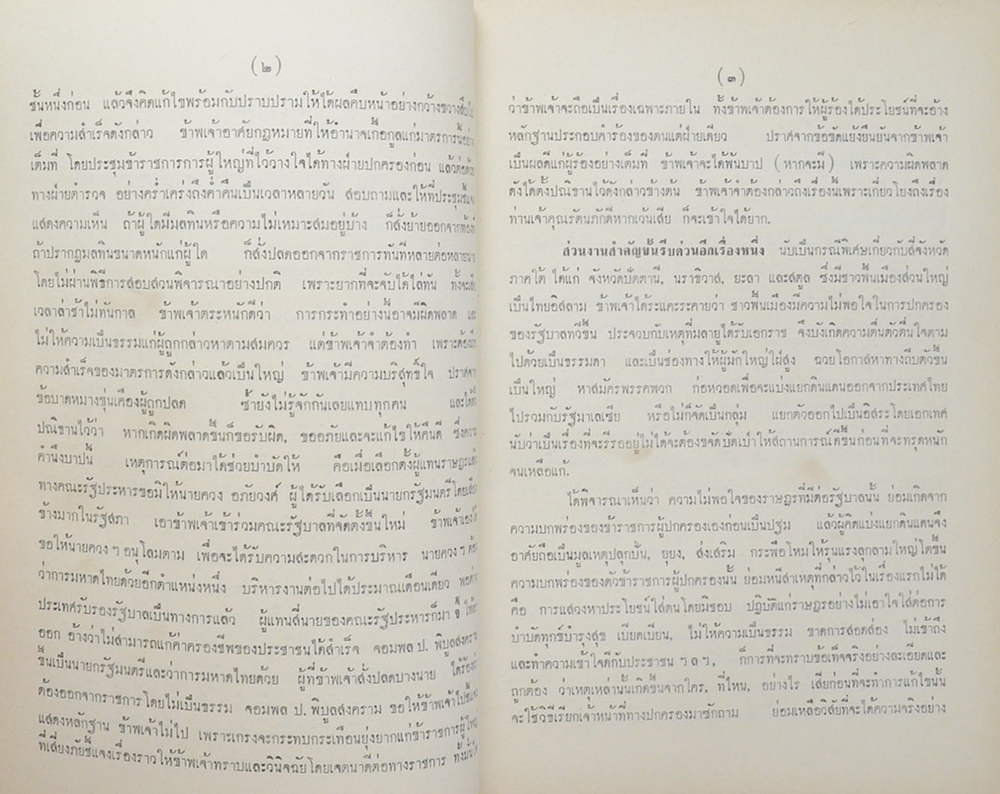 (๒)
ชั้นหนึ่งก่อน แล้วจึงคิดแก้ไขพร้อมกับปราบปรามให้ได้ผลคืบหน้าอย่างกว้างขวาง
เพื่อความสำเร็จดังกล่าว ข้าพเจ้าอาศัยกฎหมายที่ให้อำนาจเกื้อกูลแก่มาตรการนี้อย่าง
เต็มที่ โดยประชุมข้าราชการการผู้ใหญ่ที่ไว้วางใจได้ทางฝ่ายปกครองก่อน แล้วต่อด้วย
ทางฝ่ายตำรวจ อย่างคร่ำเคร่งถึงค่ำคืนเป็นเวลาหลายวัน สอบถามและให้ที่ประชุมชี้แจง
แสดงความเห็น ถ้าผู้ใดมีมลทินหรือความไม่เหมาะสมอยู่บ้าง ก็สั่งย้ายออกจากท้องที่
ถ้าปรากฏมลทินขนาดหนักแก่ผู้ใด ก็สั่งปลดออกจากราชการทันทีหลายต่อหลายนาย
โดยไม่ผ่านพิธีการสอบสวนพิจารณาอย่างปกติ เพราะยากที่จะจับได้ไล่ทัน ทั้งจะเสีย
เวลาล่าช้าไม่ทันกาล ข้าพเจ้าตระหนักดีว่า การกระทำอย่างนี้อาจมีผิดพลาด และ
ไม่ให้ความเป็นธรรมแก่ผู้ถูกกล่าวหาตามสมควร แต่ข้าพเจ้าจำต้องทำ เพราะต้องถือ
ความสำเร็จของมาตรการดังกล่าวแล้วเป็นใหญ่ ข้าพเจ้ามีความบริสุทธิ์ใจ ปราศจาก
ข้อบาดหมางขุ่นเคืองผู้ถูกปลด ซ้ำยังไม่รู้จักกันเลยแทบทุกคน และได้ตั้ง
ปณิธานไว้ว่า หากเกิดผิดพลาดขึ้นก็ขอรับผิด, ขออภัยและจะแก้ไขให้คืนดี ซึ่งความ
คำนึงบาปนี้ เหตุการณ์ต่อมาได้ช่วยบำบัดให้ คือเมื่อเลือกตั้งผู้แทนราษฎรแล้ว
ทางคณะรัฐประหารขอมิให้นายควง อภัยวงศ์ ผู้ได้รับเลือกเป็นนายกรัฐมนตรีโดยเสียง
ข้างมากในรัฐสภา เอาข้าพเจ้าเข้าร่วมคณะรัฐบาลที่จัดตั้งขึ้นใหม่ ข้าพเจ้าเองก็
ขอให้นายควง ฯ อนุโลมตาม เพื่อจะได้รับความสะดวกในการบริหาร นายควง ฯ ต้อง
ว่าการมหาดไทยด้วยอีกตำแหน่งหนึ่ง บริหารงานต่อไปได้ประมาณเดือนเดียว พอต่าง
ประเทศรับรองรัฐบาลเป็นทางการแล้ว ผู้แทนสี่นายของคณะรัฐประหารก็มาจี้ ให้ลา
ออก อ้างว่าไม่สามารถแก้ค่าครองชีพของประชาชนได้สำเร็จ จอมพล ป. พิบูลสงคราม
ขึ้นเป็นนายกรัฐมนตรีและว่าการมหาดไทยด้วย ผู้ที่ข้าพเจ้าสั่งปลดบางนาย ได้ร้องว่า
ต้องออกจากราชการโดยไม่เป็นธรรม จอมพล ป. พิบูลสงคราม ขอให้ข้าพเจ้าไปชี้แจง
แสดงหลักฐาน ข้าพเจ้าไม่ไป เพราะเกรงจะกระทบกระเทือนยุ่งยากแก่ข้าราชการผู้ใหญ่
ที่เสี่ยงภัยชี้แจงเรื่องราวให้ข้าพเจ้าทราบและวินิจฉัยโดยเจตนาดีต่อทางราชการ
(๓)
ว่าข้าพเจ้าจะถือเป็นเรื่องเฉพาะภายใน ทั้งข้าพเจ้าต้องการให้ผู้ร้องได้ประโยชน์ที่จะอ้าง
หลักฐานประกอบคำร้องของตนแต่ฝ่ายเดียว ปราศจากข้อขัดแย้งยืนยันจากข้าพเจ้า
เป็นผลดีแก่ผู้ร้องอย่างเต็มที่ ข้าพเจ้าจะได้พ้นบาป (หากจะมี) เพราะความผิดพลาด
ดังได้ตั้งปณิธานไว้ดังกล่าวข้างต้น ข้าพเจ้าจำต้องกล่าวถึงเรื่องนี้เพราะเกี่ยวโยงถึงเรื่อง
ท่านเจ้าคุณรัตนภักดีหากเว้นเสีย ก็จะเข้าใจได้ยาก.
ส่วนงานสำคัญขั้นรีบด่วนอีกเรื่องหนึ่ง นับเป็นกรณีพิเศษเกี่ยวกับสี่จังหวัด
ภาคใต้ ได้แก่ จังหวัดปัตตานี, นราธิวาส, ยะลา และสตูล ซึ่งมีชาวพื้นเมืองส่วนใหญ่
เป็นไทยอิสลาม ข้าพเจ้าได้ระแคะระคายว่า ชาวพื้นเมืองมีความไม่พอใจในการปกครอง
ของรัฐบาลทวีขึ้น ประจวบกับเหตุที่มลายูได้รับเอกราช จึงบังเกิดความตื่นตัวตื่นใจตาม
ไปด้วยเป็นธรรมดา และเป็นช่องทางให้ผู้มักใหญ่ใฝ่สูง ฉวยโอกาสหาทางถีบตัวขึ้น
เป็นใหญ่ หาสมัครพรรคพวก ก่อหวอดเพื่อจะแบ่งแยกดินแดนออกจากประเทศไทย
ไปรวมกับรัฐมาเลเซีย หรือไม่ก็จัดเป็นกลุ่ม แยกตัวออกไปเป็นอิสระโดยเอกเทศ
นับว่าเป็นเรื่องที่จะรีรออยู่ไม่ได้จะต้องขจัดปัดเป่าให้สถานการณ์ดีขึ้นก่อนที่จะทรุดหนัก
จนเหลือแก้.
ได้พิจารณาเห็นว่า ความไม่พอใจของราษฎรที่มีต่อรัฐบาลนั้น ย่อมเกิดจาก
ความบกพร่องของข้าราชการผู้ปกครองเองก่อนเป็นปฐม แล้วผู้คิดแบ่งแยกดินแดนจึง
อาศัยถือเป็นมูลเหตุปลุกปั่น, ยุยง, ส่งเสริม กระพือโหมให้รุนแรงลุกลามใหญ่โตขึ้น
ความบกพร่องของตัวข้าราชการผู้ปกครองนั้น ย่อมหนีสาเหตุที่กล่าวไว้ในเรื่องแรกไม่ได้
คือ การแสวงหาประโยชน์ใส่ตนโดยมิชอบ ปฏิบัติแก่ราษฎรอย่างไม่เอาใจใส่ต่อการ
บำบัดทุกข์บำรุงสุข เบียดเบียน, ไม่ให้ความเป็นธรรม ขาดการสอดส่อง ไม่เข้าถึง
และทำความเข้าใจดีกับประชาชน ฯ ล ฯ, ก็การที่จะทราบข้อเท็จจริงอย่างละเอียดและ
ถูกต้อง ว่าเหตุเหล่านั้นเกิดขึ้นจากใคร, ที่ไหน, อย่างไร เสียก่อนที่จะทำการแก้ไขนั้น
จะใช้วิธีเรียกเจ้าหน้าที่ทางปกครองมาซักถาม ย่อมเหลือวิสัยที่จะได้ความจริงอย่าง